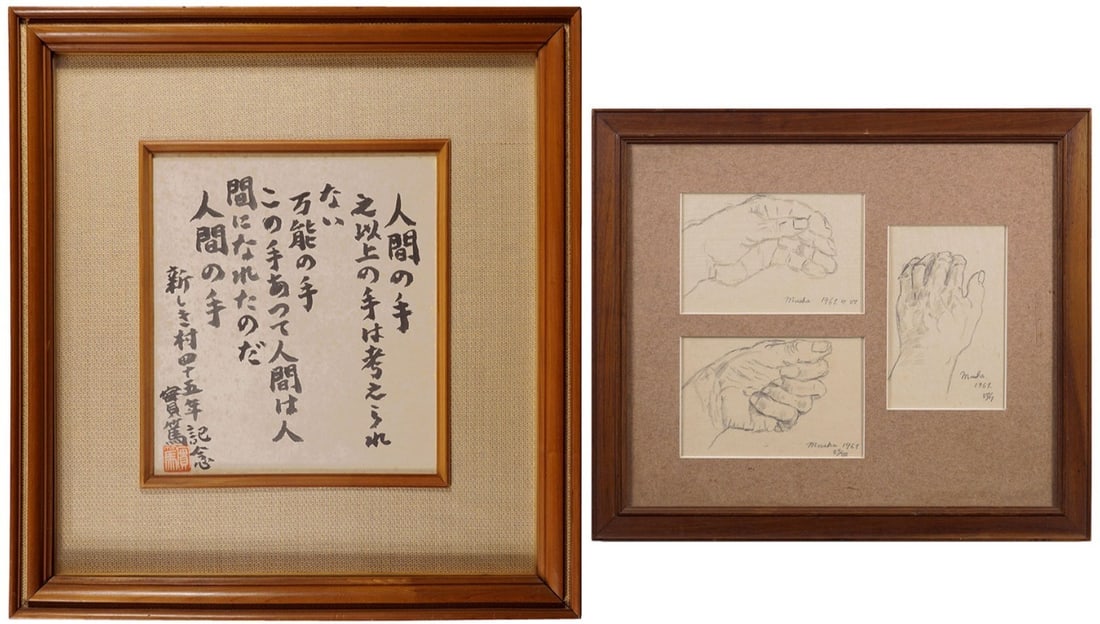 人間の手
之以上の手は考えられ
ない
万能の手
この手あつて人間は人
間になれたのだ
人間の手
新しき村四十五年記念
實篤
Musha 1963
Musha 1963
Musha
1963